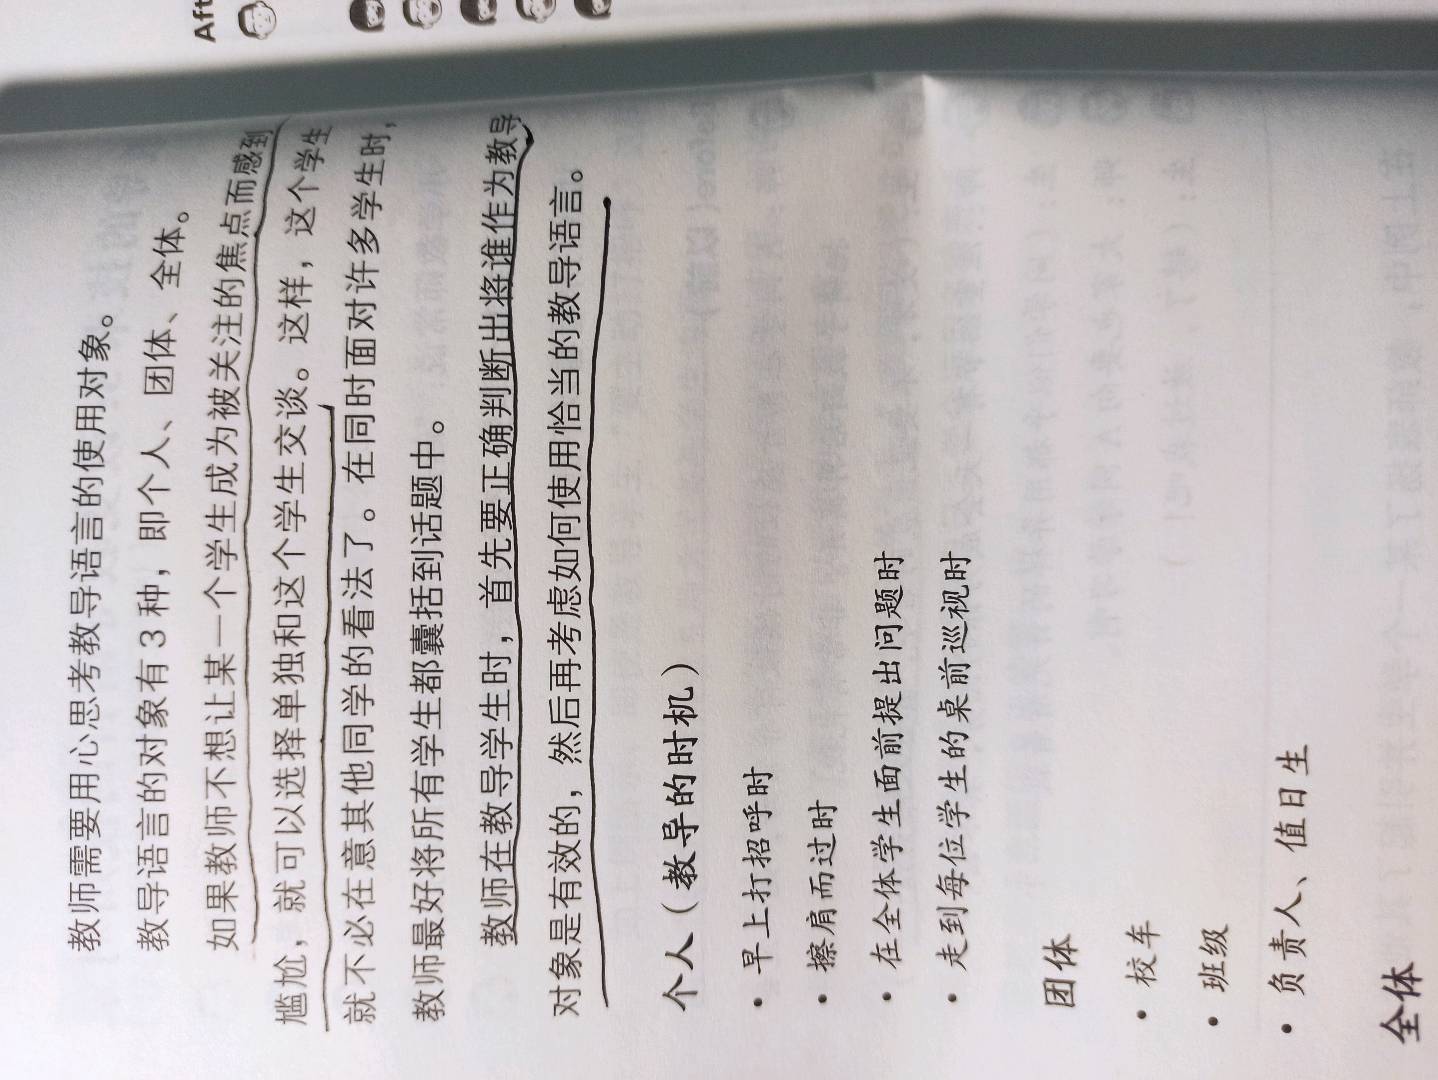 Aft
教师需要用心思考教导语言的使用对象。
教导语言的对象有3种，即个人、团体、全体。
如果教师不想让某一个学生成为被关注的焦点而感到
尴尬，就可以选择单独和这个学生交谈。这样，这个学生
就不必在意其他同学的看法了。在同时面对许多学生时，
教师最好将所有学生都囊括到话题中。
教师在教导学生时，首先要正确判断出将谁作为教导
对象是有效的，然后再考虑如何使用恰当的教导语言。
个人（教导的时机）
• 早上打招呼时
• 擦肩而过时
• 在全体学生面前提出问题时
• 走到每位学生的桌前巡视时
团体
• 校车
• 班级
• 负责人、值日生
全体